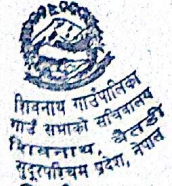 शिवनाथ गाउँपालिका
गाउँ सभाको सचिवालय
शिवनाथ, बैतडी
सुदूरपश्चिम प्रदेश, नेपाल